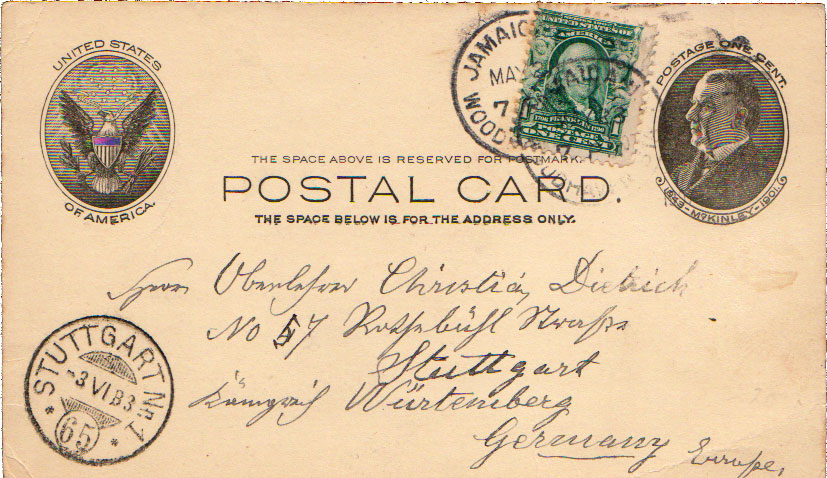 UNITED STATES
OF AMERICA.
JAMAICA
MAY
7
WOOD
UNITED STATES OF
AMERICA
1 1
POSTAGE
ONE CENT
POSTAGE ONE CENT.
1843-McKINLEY-1901.
THE SPACE ABOVE IS RESERVED FOR POSTMARK.
POSTAL CARD.
THE SPACE BELOW IS FOR THE ADDRESS ONLY.
Herrn Oberlehrer Christian Dietrich
No 57 Rothebühl Strasse
Stuttgart
Königreich Würtemberg
Germany Europe,
STUTTGART No 1
-3 VI 8 3-
* 65 *